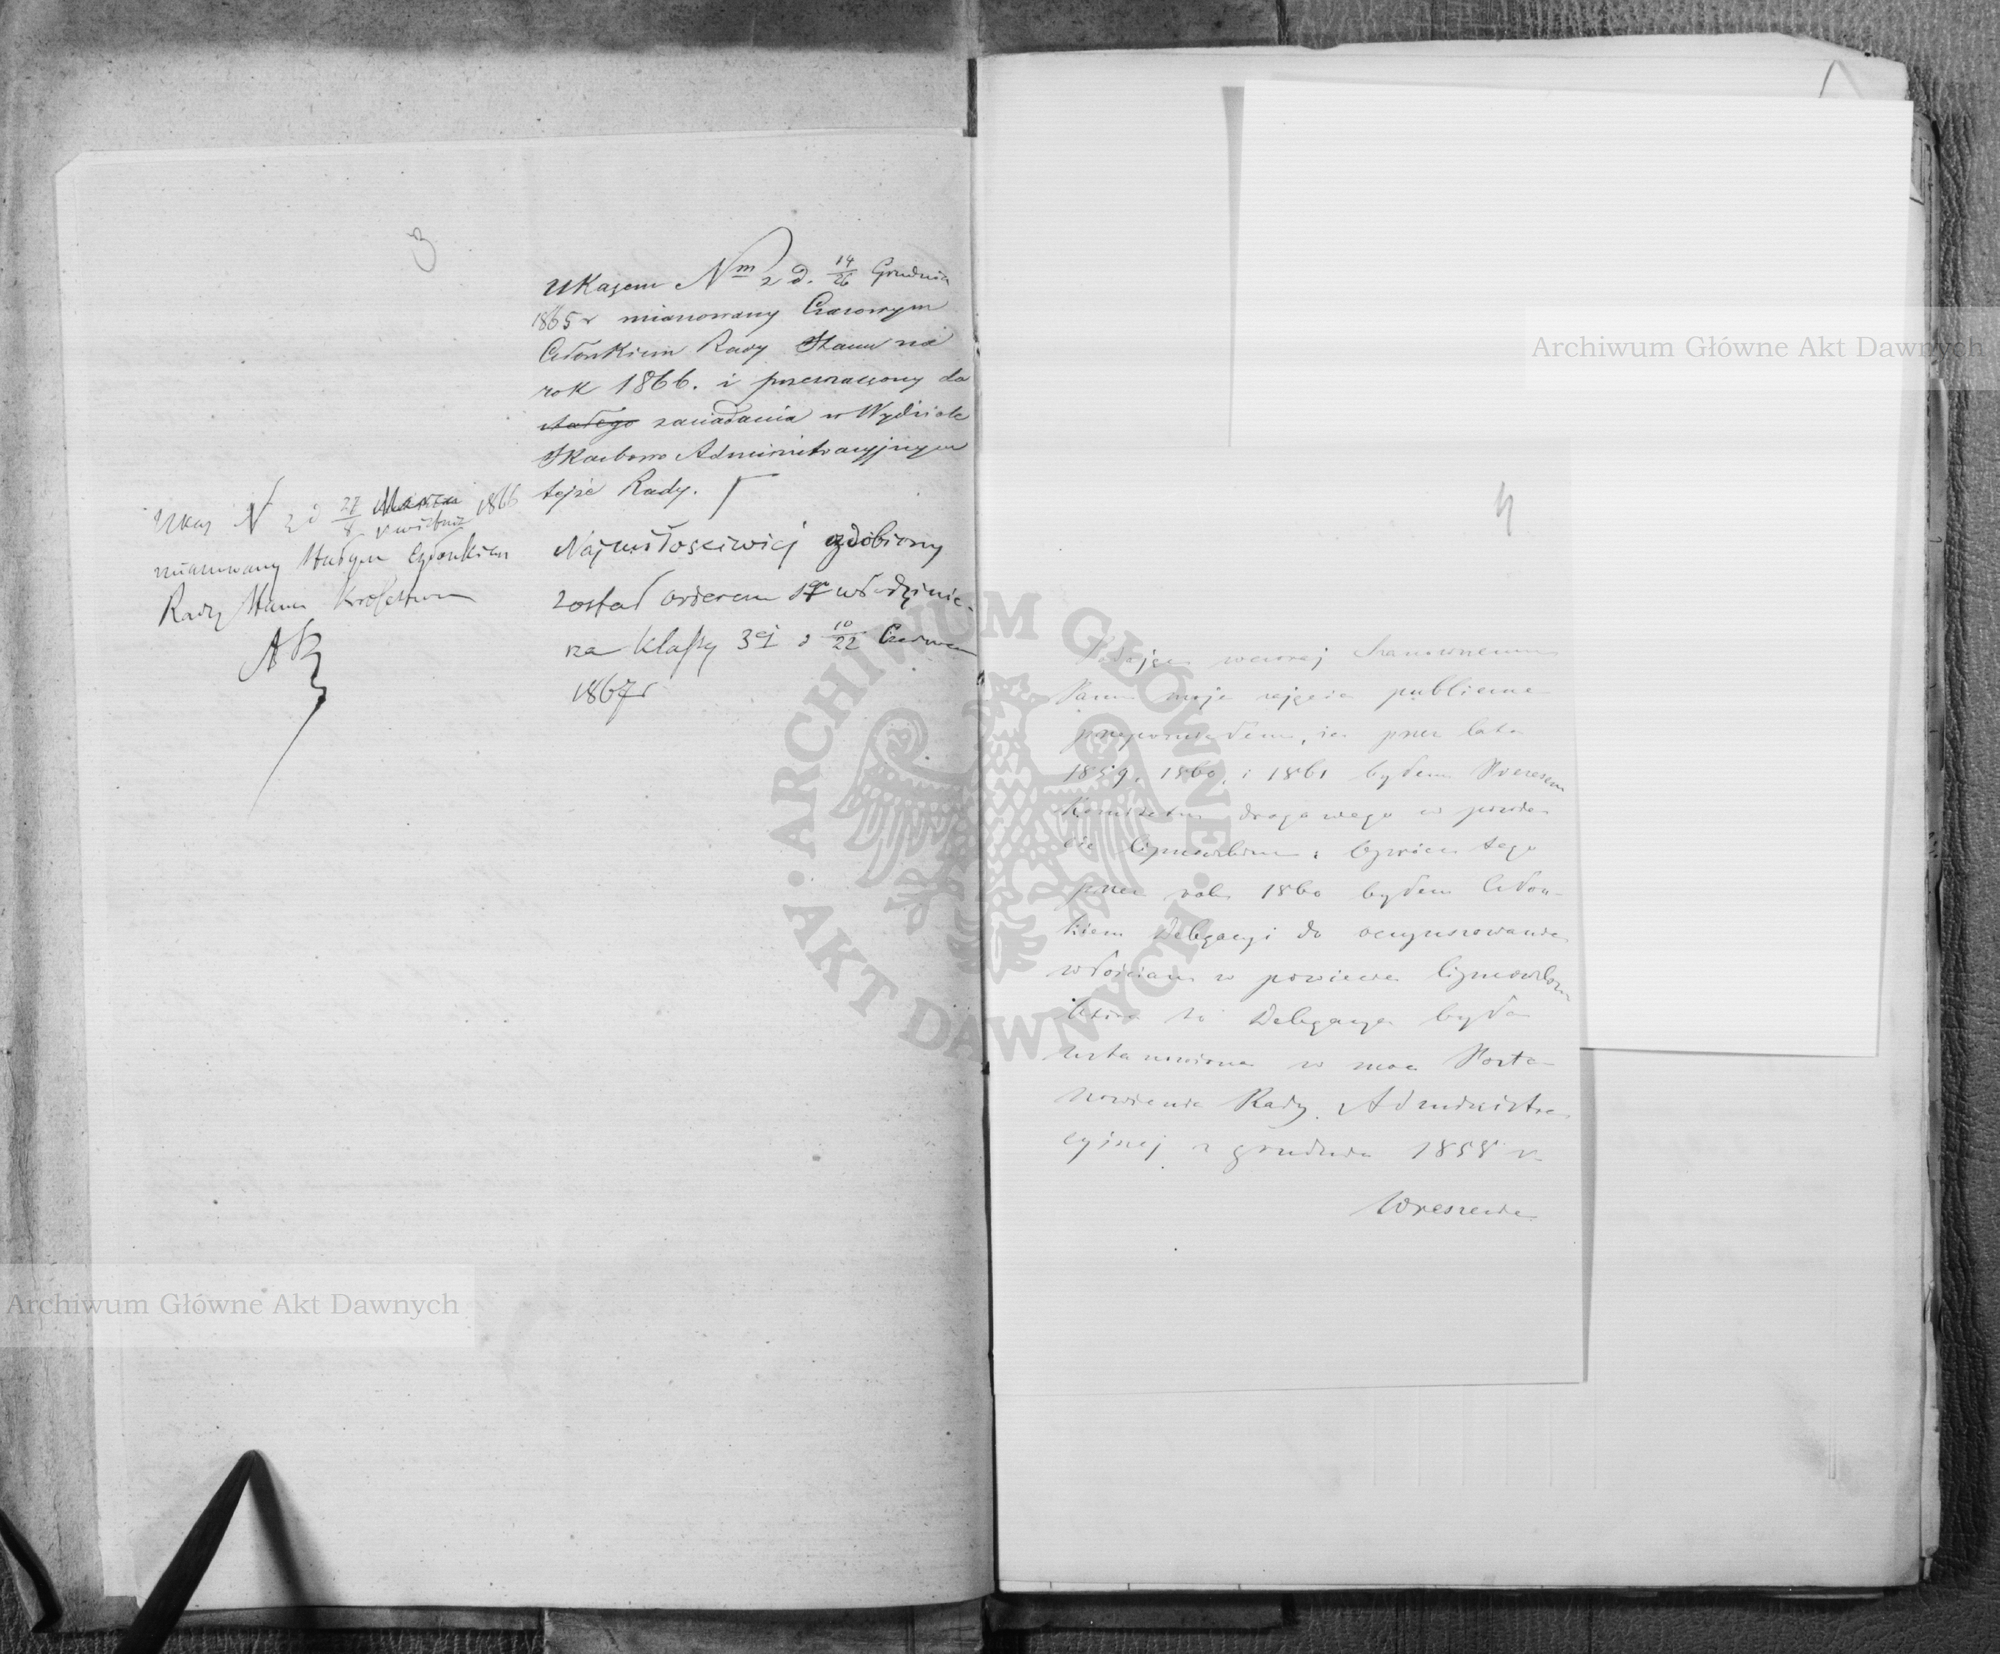 3
Ukazem Nm z d. 14/26 Grudnia
1865 r mianowany Czasowym
Członkiem Rady Stanu na
rok 1866. i przeznaczony do
stałego zasiadania w Wydziale
Skarbowo Administracyjnym
tejże Rady.
Ukaz N z d 27/8 Marca kwietnia 1866
mianowany Stałym Członkiem
Rady Stanu Królestwa
Najmiłościwiej ozdobiony
został orderem Sgo włodzimie-
rza Klassy 3ej d 10/22 Czerwca
1867 r
4
Podając wczoraj Szanownemu
Panu moje zajęcia publiczne
przepomniałem, że przez lata
1859, 1860, i 1861 byłem Prezesem
Komitetu drogowego w powie-
cie Lipnowskim; oprócz tego
przez rok 1860 byłem Człon-
kiem Delegacyi do oczynszowania
włościan w powiecie Lipnowskim
która to Delegacya była
ustanowiona w moc Posta-
nowienia Rady Administra-
cyjnej z grudnia 1858 r.
ARCHIWUM GŁÓWNE AKT DAWNYCH
Archiwum Główne Akt Dawnych
Archiwum Główne Akt Dawnych